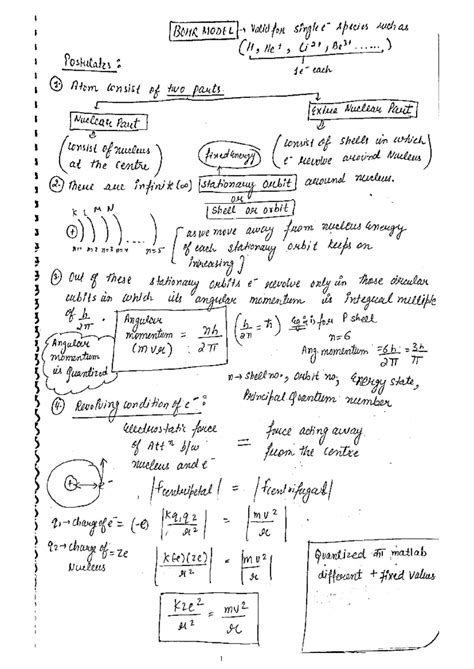 BOHR MODEL → Valid for single e⁻ species such as
(H, He⁺, Li²⁺, Be³⁺ ......)
1e⁻ each
Postulates :
1. Atom consist of two parts.
Nuclear Part
Extra Nuclear Part
(consist of nucleus
at the centre)
(consist of shells in which
e⁻ revolve around Nucleus)
fixed energy
2. There are infinite (∞) stationary orbit around nucleus.
or
Shell or orbit
K L M N
(+) ) ) ) ) ..... )
n=1 n=2 n=3 n=4 n=5
[as we move away from nucleus energy
of each stationary orbit keeps on
increasing]
3. Out of these stationary orbits e⁻ revolve only in those circular
orbits in which its angular momentum is integral multiple
of h/2π.
Angular momentum is Quantized
Angular momentum (mvr) = nh/2π
(h/2π = ħ)
for P shell
n=6
Ang. momentum = 6h/2π = 3h/π
n → shell no., orbit no., Energy state,
Principal Quantum number
4. Revolving condition of e⁻ :
Electrostatic force of Attⁿ b/w nucleus and e⁻ = force acting away from the centre
|Fcentripetal| = |Fcentrifugal|
q₁ → charge of e⁻ = (-e)
q₂ → charge of Nucleus = Ze
|Kq₁q₂/r²| = |mv²/r|
|K(e)(Ze)/r²| = |mv²/r|
KZe²/r² = mv²/r
Quantized का मतलब
different + fixed values
1